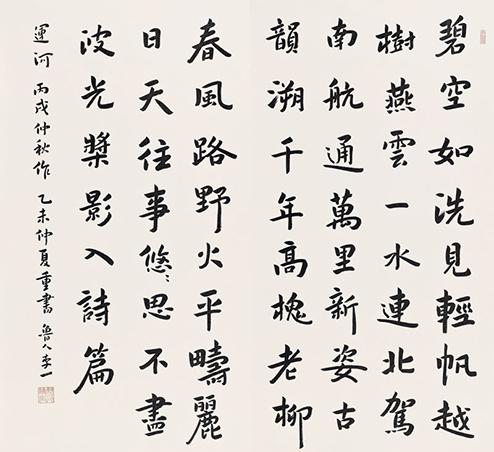 碧空如洗見輕帆越
樹燕雲一水連北駕
南航通萬里新姿古
韻溯千年高槐老柳
春風路野火平疇麗
日天往事悠〻思不盡
波光槳影入詩篇
運河 丙戌仲秋作 乙未仲夏重書 魯人李一